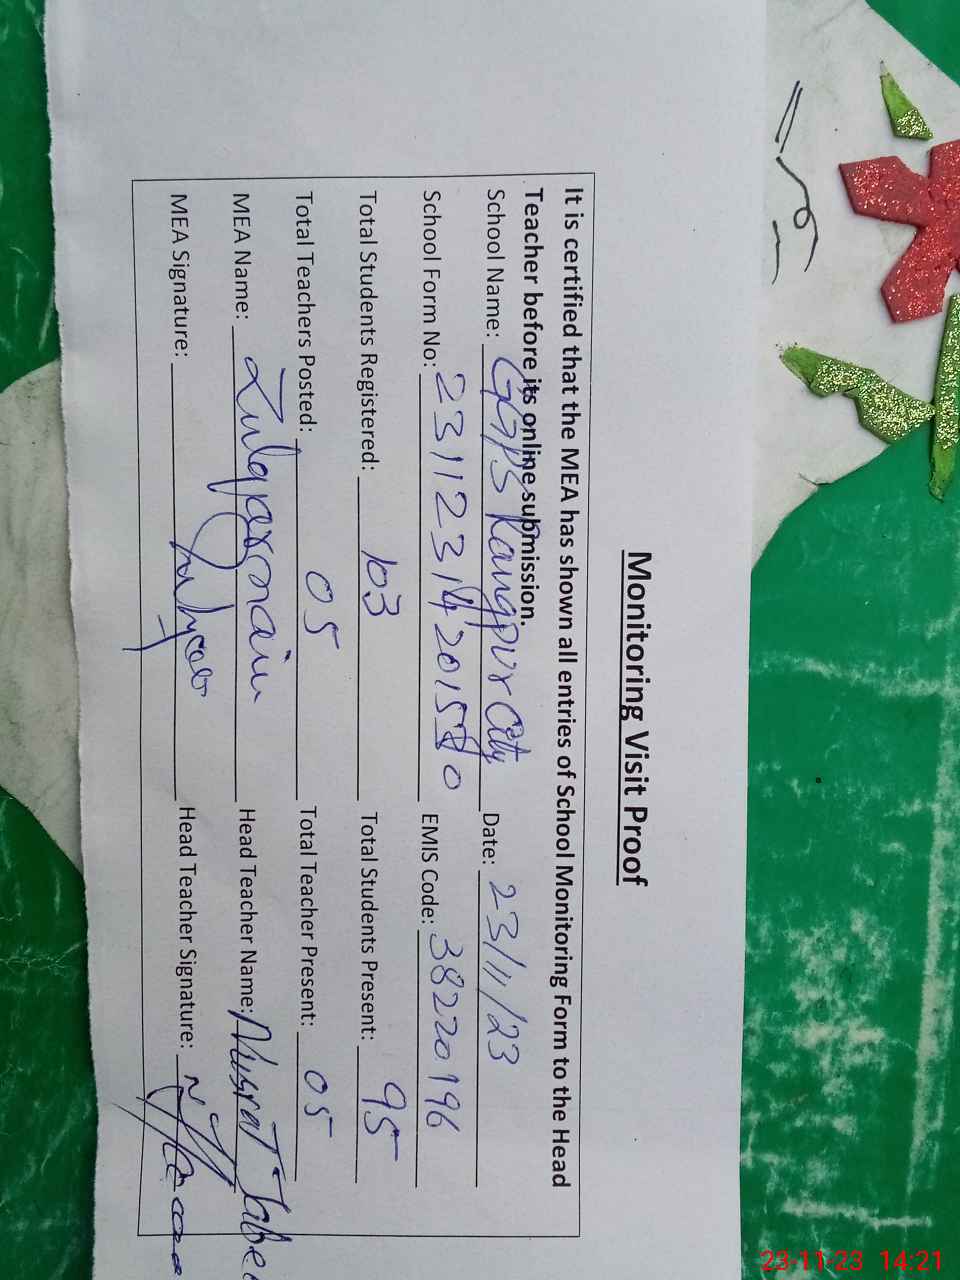 Monitoring Visit Proof
It is certified that the MEA has shown all entries of School Monitoring Form to the Head
Teacher before its online submission.
School Name: GGPS Rangpur City Date: 23/11/23
School Form No: EMIS Code: 38220196
Total Students Registered: 103 Total Students Present: 95
Total Teachers Posted: 05 Total Teacher Present: 05
MEA Name: Zulqarnain Head Teacher Name: Nusrat
MEA Signature: Head Teacher Signature:
23-11-23 14:21